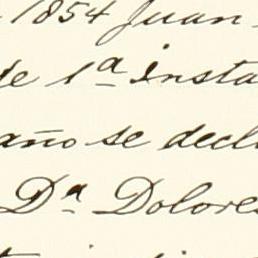 1854 Juan
de 1ª Insta
año se decl
Dª Dolores